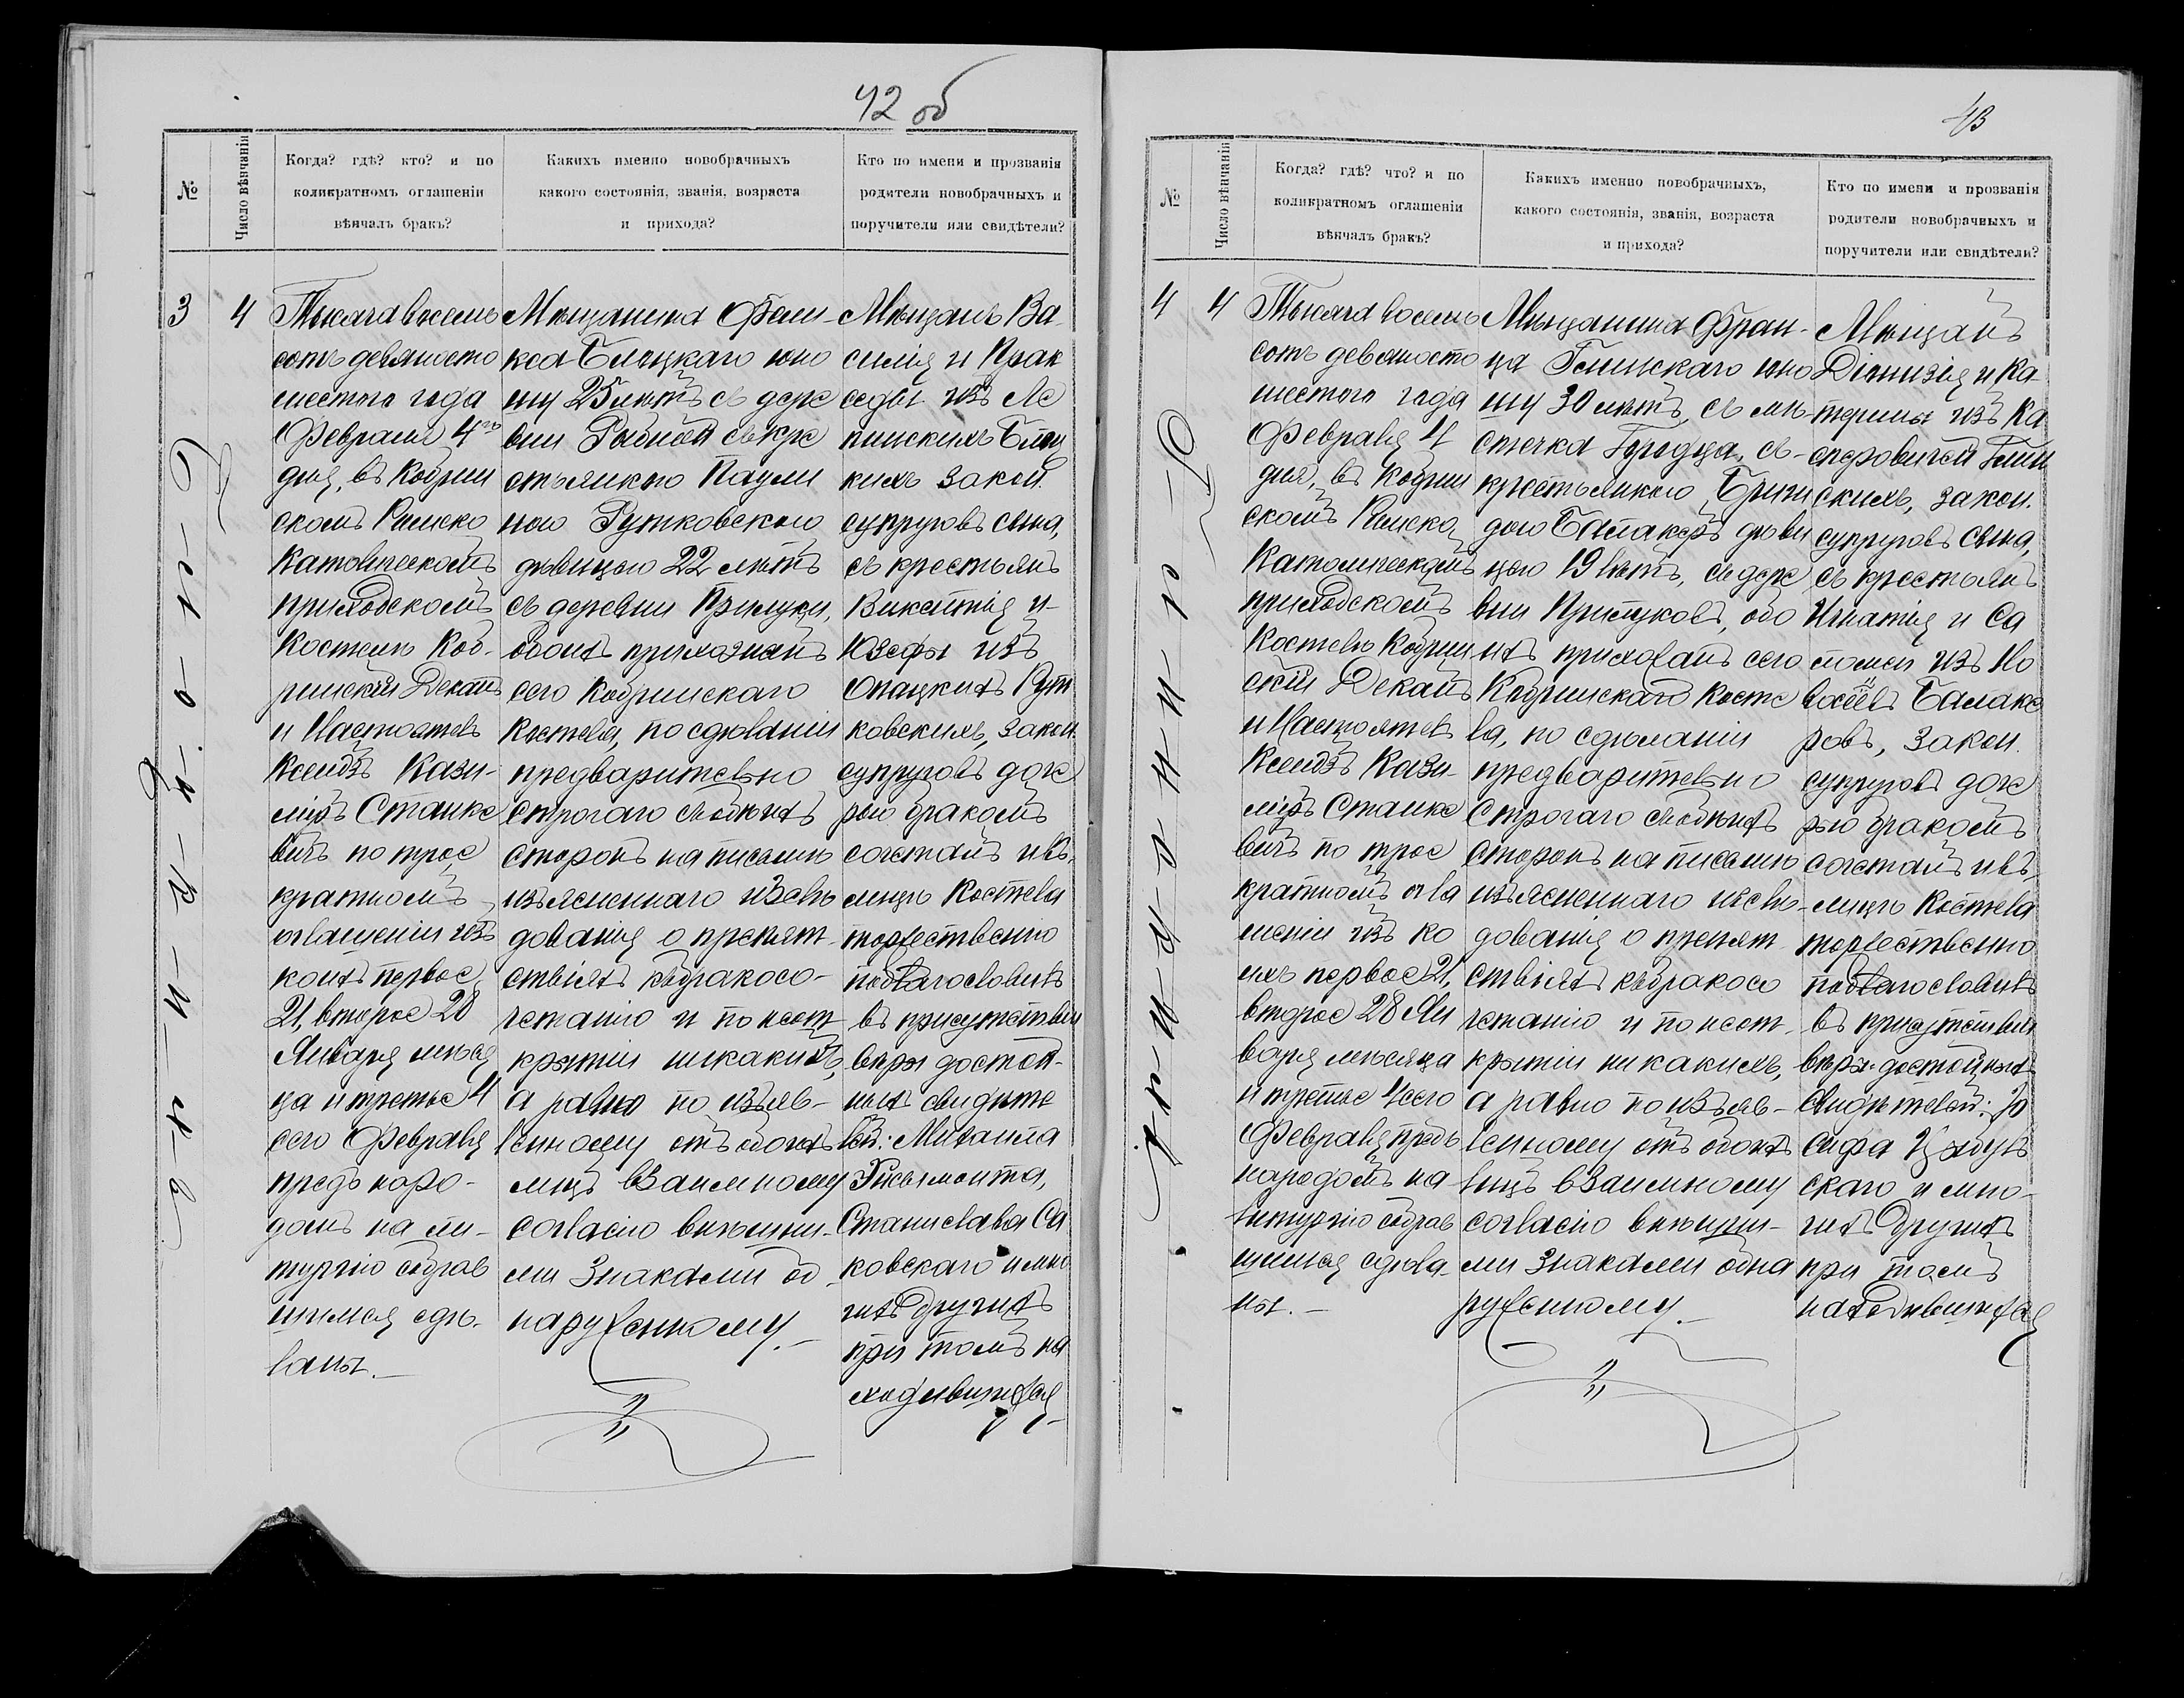 42 об
№
Число вѣнчанія
Когда? гдѣ? кто? и по
коликратномъ оглашеніи
вѣнчалъ бракъ?
Какихъ именно новобрачныхъ
какого состоянія, званія, возраста
и прихода?
Кто по имени и прозванія
родители новобрачныхъ и
поручители или свидѣтели?
3
4
Тысяча восемь
сотъ девяносто
шестого года
Февраля 4го
дня, въ Кобрин
скомъ Римско
Католическомъ
приходскомъ
Костелѣ Коб-
ринскій Деканъ
и Настоятель
Ксендзъ Кази-
міръ Станке
вичъ по трое
кратномъ
оглашеніи изъ
коихъ первое
21, второе 28
Января мѣся
ца и третье 4
сего Февраля
предъ наро-
домъ на ли-
тургію собрав
шимся сдѣ-
ланы.-
Мѣщанина Фели-
кса Блоцкаго юно
шу 25 лѣтъ съ дере
вни Рыбной съ кре
стьянкою Паули
ною Рутковскою
дѣвицею 22 лѣтъ
съ деревни Прилуки,
обоихъ прихожанъ
сего Кобринскаго
Костела, по сдѣланіи
предварительно
строгаго съ обоихъ
сторонъ на письмѣ
изъясненнаго изслѣ
дованія о препят-
ствіяхъ къ бракосо-
четанію и по неот
крытіи никакихъ,
а равно по изъяв-
ленному отъ обоихъ
лицъ взаимному
согласію внѣшни-
ми знаками об
наруженному.-
Мѣщанъ Ва
силія и Прак
седы изъ Ле
пинскихъ Блоц
кихъ закон.
супруговъ сына,
съ крестьянъ
Викентія и-
Юзефы изъ
Опацкихъ Рут
ковскихъ, закон.
супруговъ доче
рью бракомъ
сочеталъ и въ
лицѣ Костела
торжественно
поблагословилъ
въ присутствіи
вѣры достой-
ныхъ свидѣте
лей: Михаила
Письмонта,
Станислава Са
ковскаго и мно
гихъ другихъ
при томъ на
ходившихся.-
43
№
Число вѣнчанія
Когда? гдѣ? что? и по
коликратномъ оглашеніи
вѣнчалъ бракъ?
Какихъ именно новобрачныхъ,
какого состоянія, званія, возраста
и прихода?
Кто по имени и прозванія
родители новобрачныхъ и
поручители или свидѣтели?
4
4
Тысяча восемь
сотъ девяносто
шестого года
Февраля 4
дня, въ Кобрин
скомъ Римско
Католическомъ
приходскомъ
Костелѣ Кобрин
скій Деканъ
и Настоятель
Ксендзъ Кази-
міръ Станке
вичъ по трое
кратномъ огла
шеніи изъ ко
ихъ первое 21,
второе 28 Ян
варя мѣсяца
и третье 4 сего
Февраля предъ
народомъ на
литургію собрав
шимся сдѣла-
ны.-
Мѣщанина Фран-
ца Глинскаго юно
шу 30 лѣтъ, съ мѣ-
стечка Городца, съ-
крестьянкою Бриги
дою Балакеръ дѣви
цею 19 лѣтъ, съ дере
вни Прилуковъ, обо
ихъ прихожанъ сего
Кобринскаго Косте
ла, по сдѣланіи
предварительно
строгаго съ обоихъ
сторонъ на письмѣ
изъясненнаго изслѣ-
дованія о препят
ствіяхъ къ бракосо
четанію и по неот-
крытіи никакихъ,
а равно по изъяв-
ленному отъ обоихъ
лицъ взаимному
согласію внѣшни-
ми знаками обна
руженному.-
Мѣщанъ
Діонизія и Ка-
терины изъ Ка
сперовичей Глин
скихъ, закон.
супруговъ сына,
съ крестьянъ
Игнатія и Са
ломеи изъ Но
восёлъ Балаке
ровъ, закон.
супруговъ доче
рью бракомъ
сочеталъ и въ
лицѣ Костела
торжественно
поблагословилъ
въ присутствіи
вѣры достойныхъ
свидѣтелей: Іо
сифа
скаго и мно-
гихъ другихъ
при томъ
находившихся